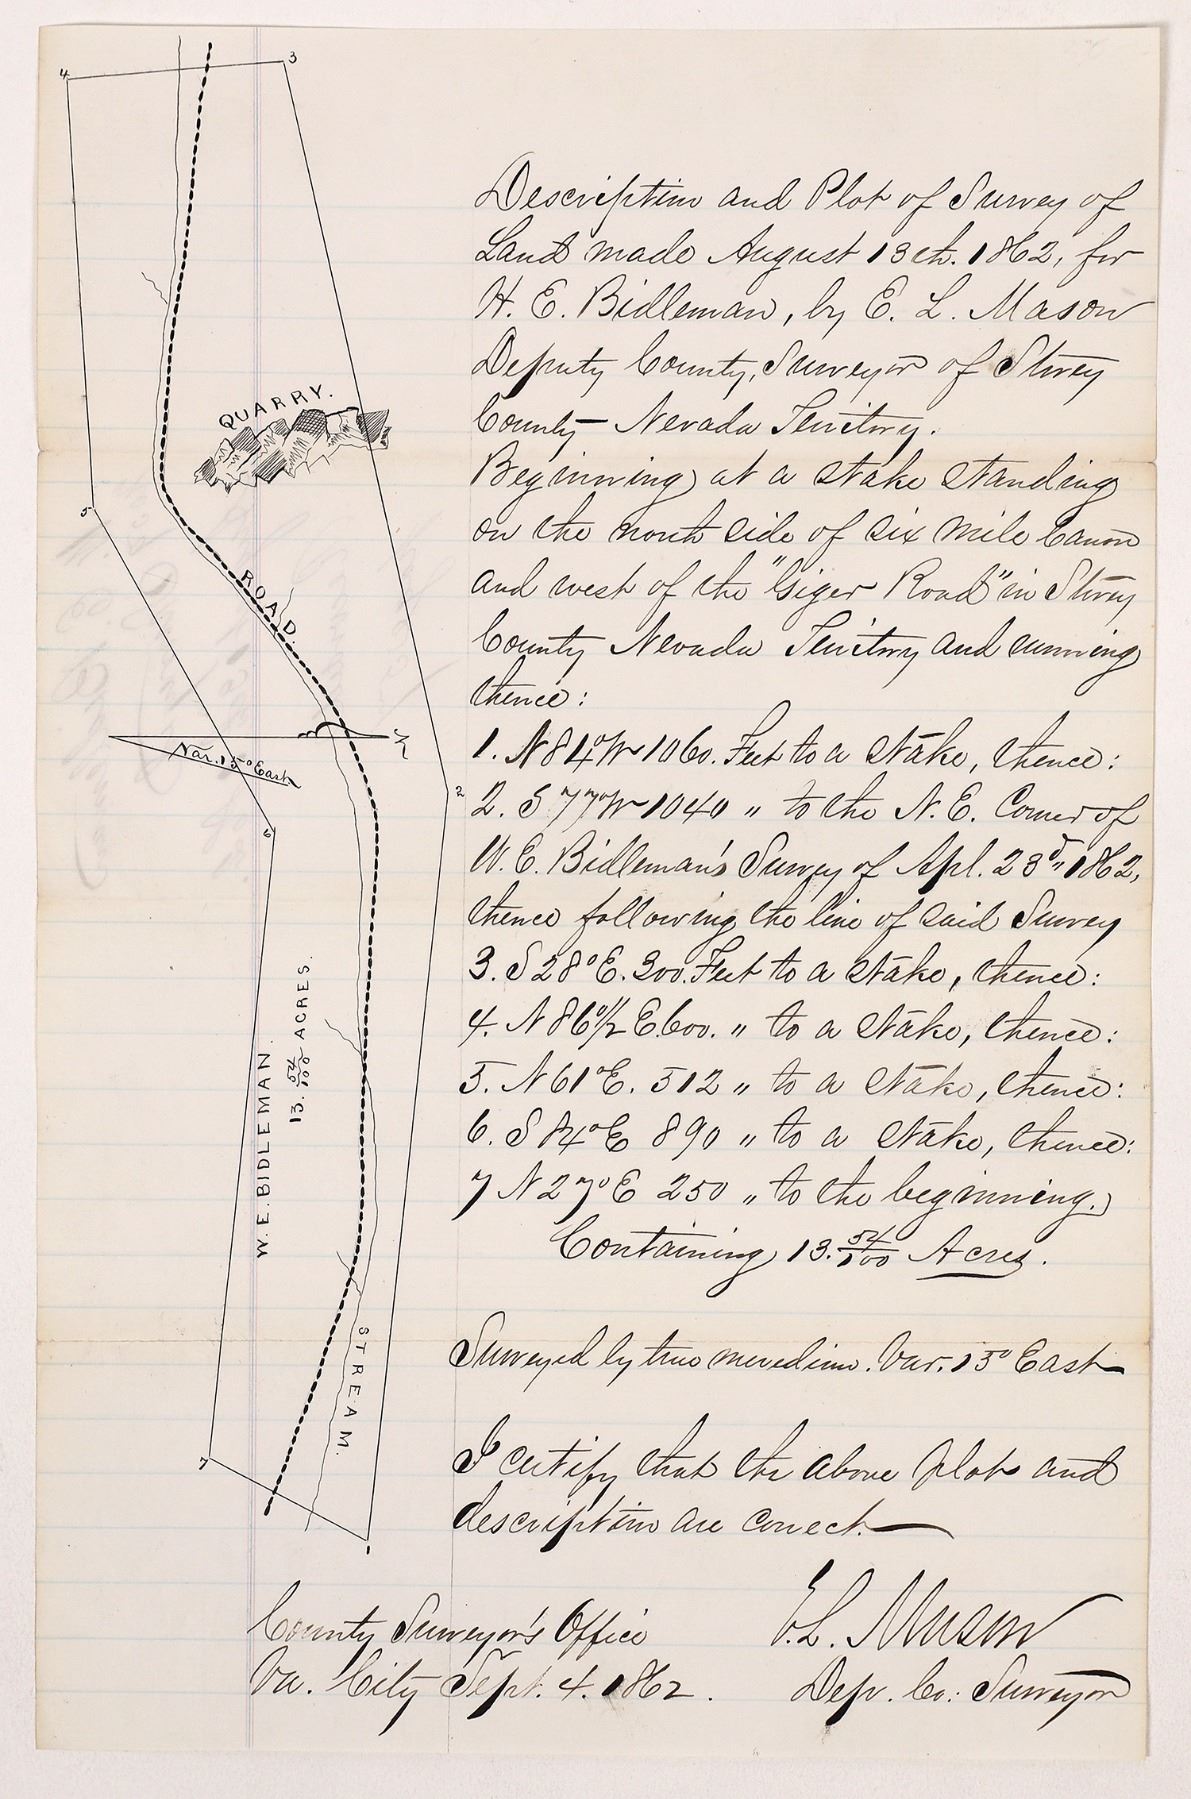 4
3
QUARRY.
5
ROAD.
Var. 15° East
N
2
6
W. E. BIDLEMAN.
13. 54/100 ACRES.
STREAM.
7
1
Description and Plot of Survey of
Land made August 13th. 1862, for
H. E. Bidleman, by E. L. Mason
Deputy County, Surveyor of Storey
County – Nevada Territory.
Beginning at a Stake Standing
on the north side of Six Mile Canon
and west of the "Giger Road" in Storey
County Nevada Territory and running
thence:
1. N 84° W 1060. Feet to a Stake, thence:
2. S 77° W 1040 " to the N. E. Corner of
W. E. Bidleman's Survey of Apl. 23d " 1862,
thence following the line of said Survey
3. S 28° E. 300. Feet to a Stake, thence:
4. N 86° 1/2 E. 600. " to a Stake, thence:
5. N 61° E. 512 " to a Stake, thence:
6. S 84° E 890 " to a Stake, thence:
7 N 27° E 250 " to the beginning.
Containing 13. 54/100 Acres.
Surveyed by true meredian. Var. 15° East
I certify that the above plot and
description are correct.
County Surveyor's Office
Va. City Sept. 4. 1862.
E. L. Mason
Dep. Co. Surveyor